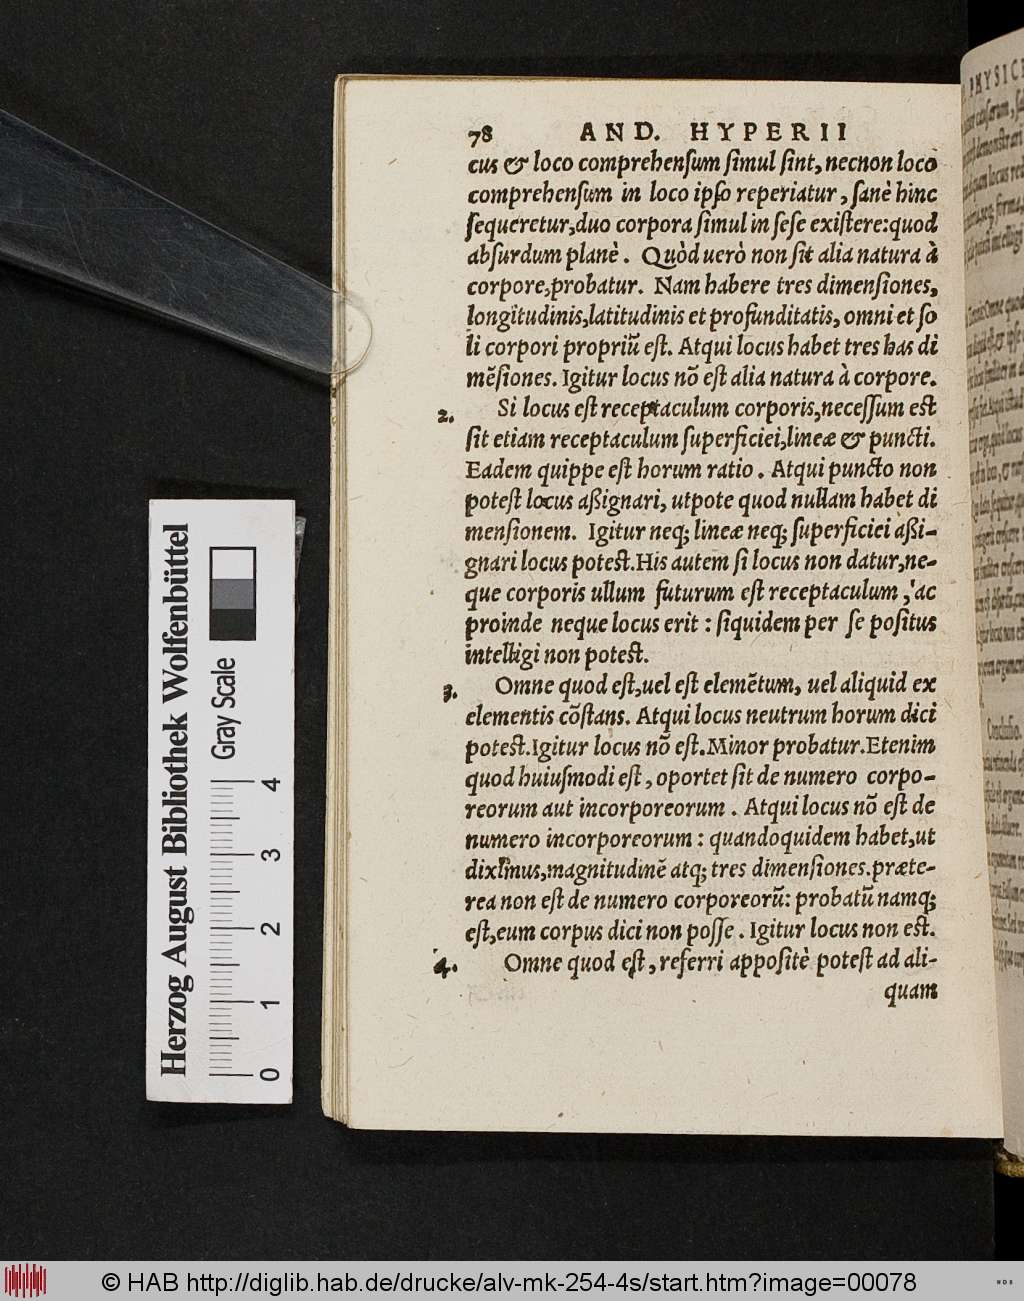 78 AND. HYPERII
cus & loco comprehenſum ſimul ſint, necnon loco
comprehenſum in loco ipſo reperiatur, ſanè hinc
ſequeretur, duo corpora ſimul in ſeſe exiſtere: quod
abſurdum planè. Quòd uerò non ſit alia natura à
corpore, probatur. Nam habere tres dimenſiones,
longitudinis, latitudinis et profunditatis, omni et ſo
li corpori propriũ eſt. Atqui locus habet tres has di
mẽſiones. Igitur locus nõ eſt alia natura à corpore.
2. Si locus eſt receptaculum corporis, neceſſum eſt
ſit etiam receptaculum ſuperficiei, lineæ & puncti.
Eadem quippe eſt horum ratio. Atqui puncto non
poteſt locus aßignari, utpote quod nullam habet di
menſionem. Igitur neq; lineæ neq; ſuperficiei aßi-
gnari locus poteſt. His autem ſi locus non datur, ne-
que corporis ullum futurum eſt receptaculum, ac
proinde neque locus erit: ſiquidem per ſe poſitus
intelligi non poteſt.
3. Omne quod eſt, uel eſt elemẽtum, uel aliquid ex
elementis cõſtans. Atqui locus neutrum horum dici
poteſt. Igitur locus nõ eſt. Minor probatur. Etenim
quod huiuſmodi eſt, oportet ſit de numero corpo-
reorum aut incorporeorum. Atqui locus nõ eſt de
numero incorporeorum: quandoquidem habet, ut
diximus, magnitudinẽ atq; tres dimenſiones. præte-
rea non eſt de numero corporeorũ: probatũ namq;
eſt, eum corpus dici non poſſe. Igitur locus non eſt.
4. Omne quod eſt, referri appoſitè poteſt ad ali-
quam
PHYSICE
Concluſio.
Herzog August Bibliothek Wolfenbüttel
Gray Scale
0 1 2 3 4
© HAB http://diglib.hab.de/drucke/alv-mk-254-4s/start.htm?image=00078